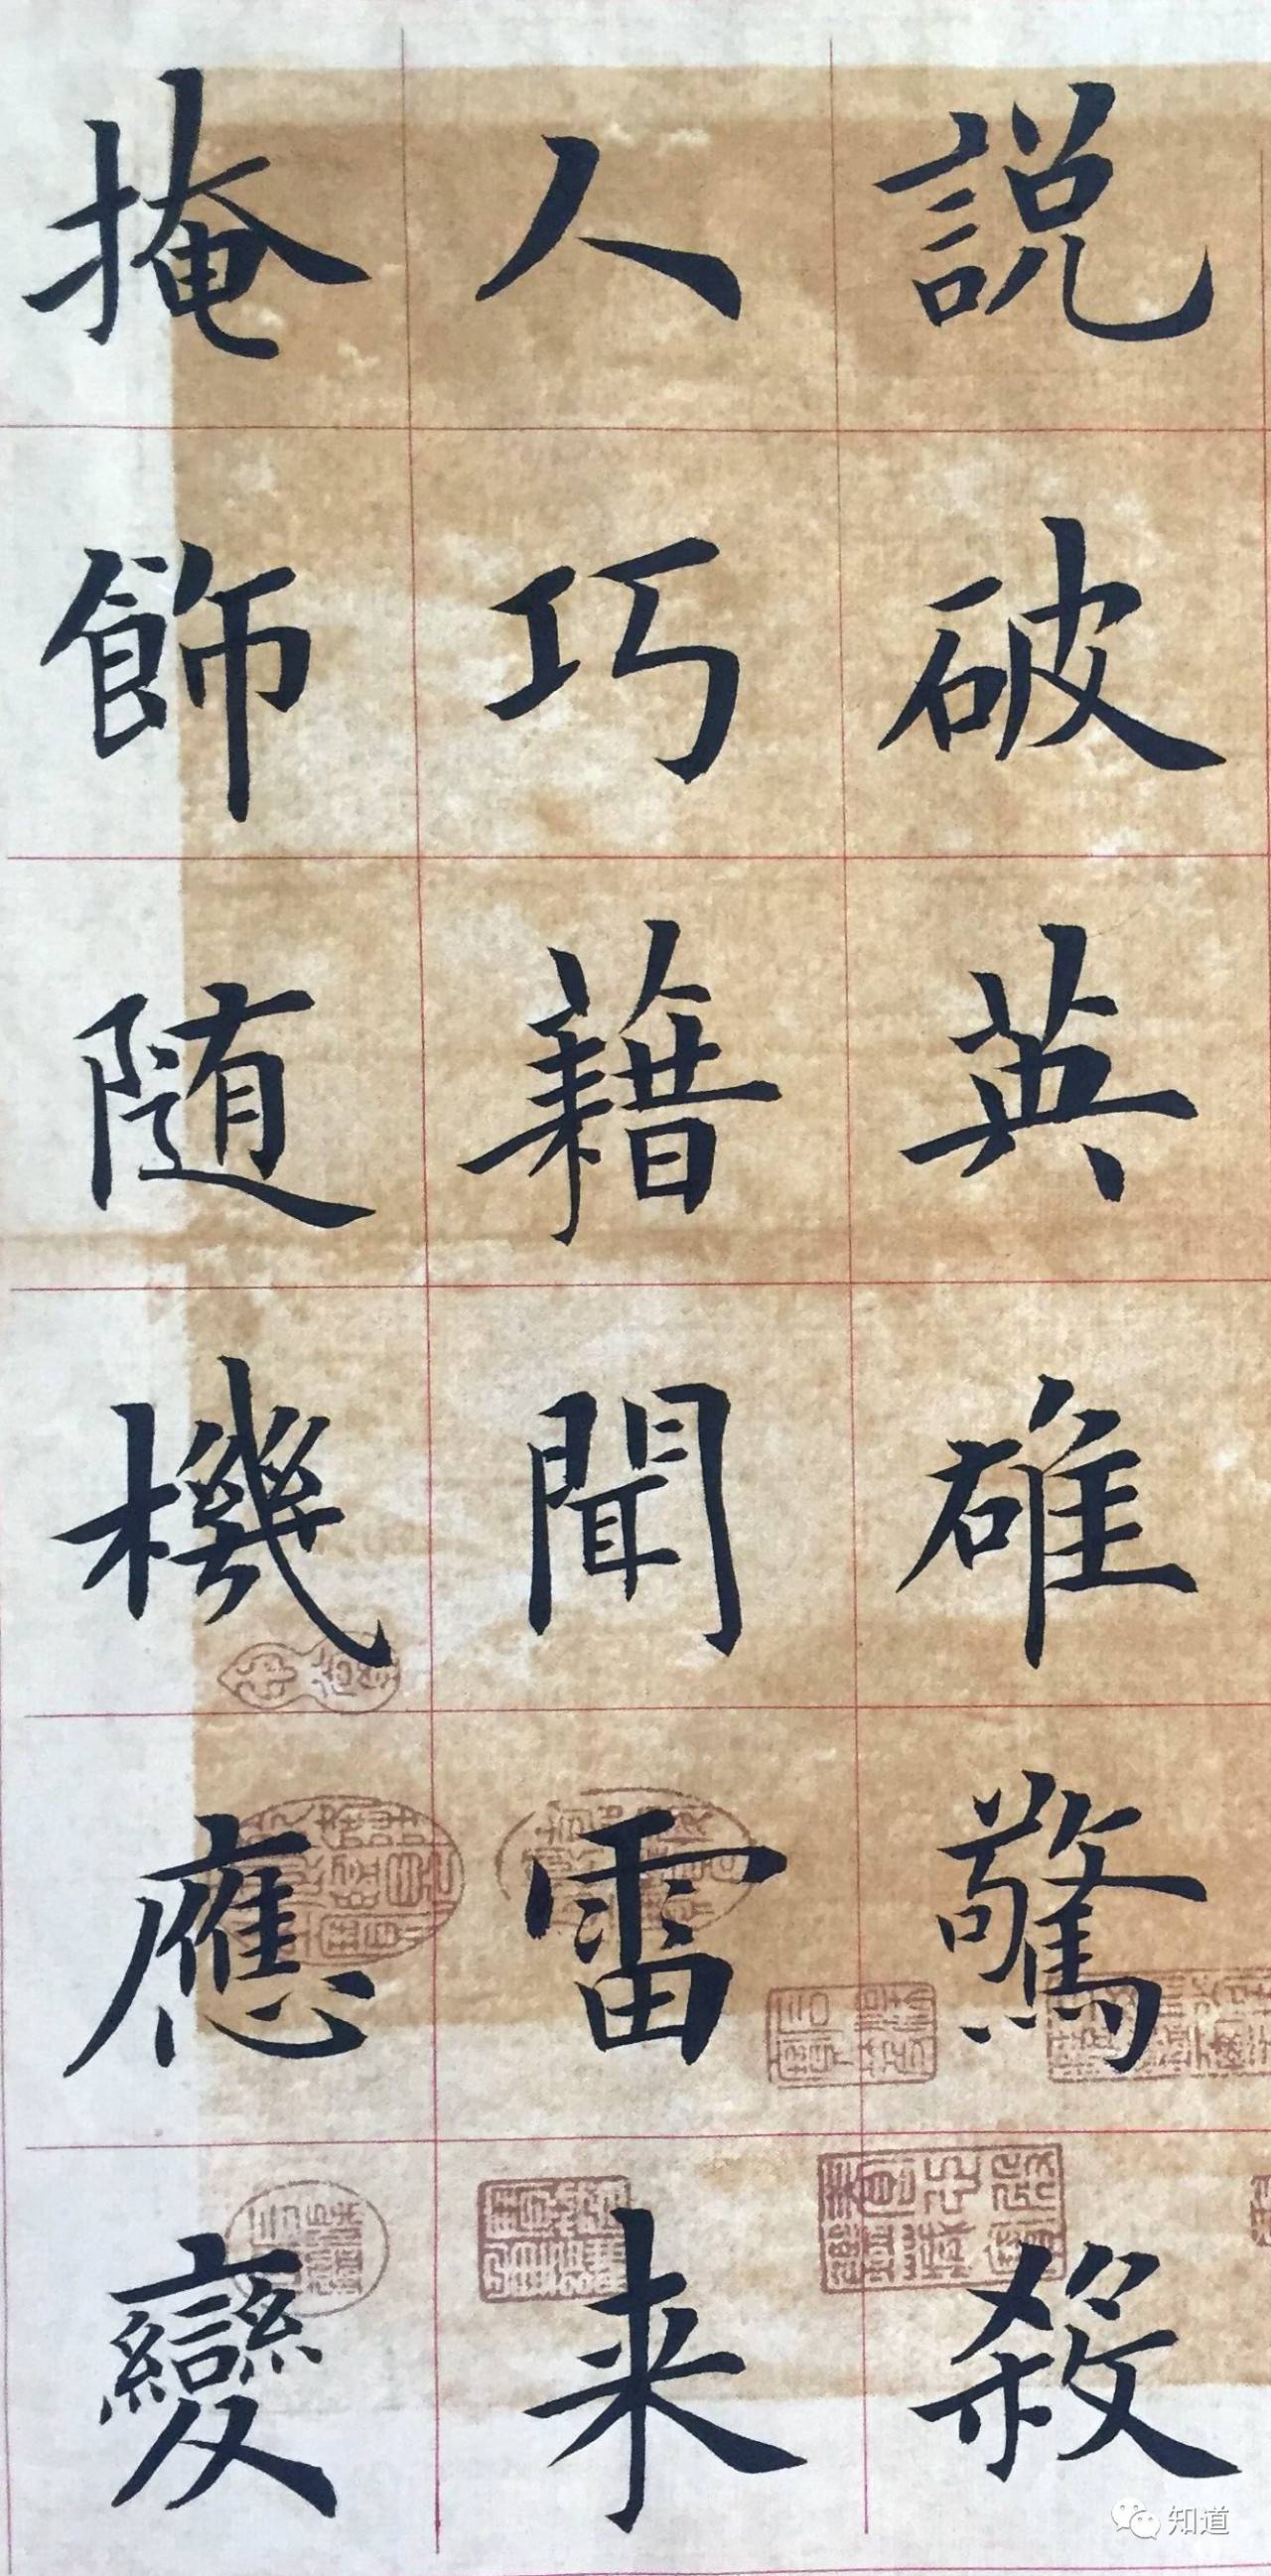 説破英雄驚殺
人巧藉聞雷来
掩飾随機應變
知道